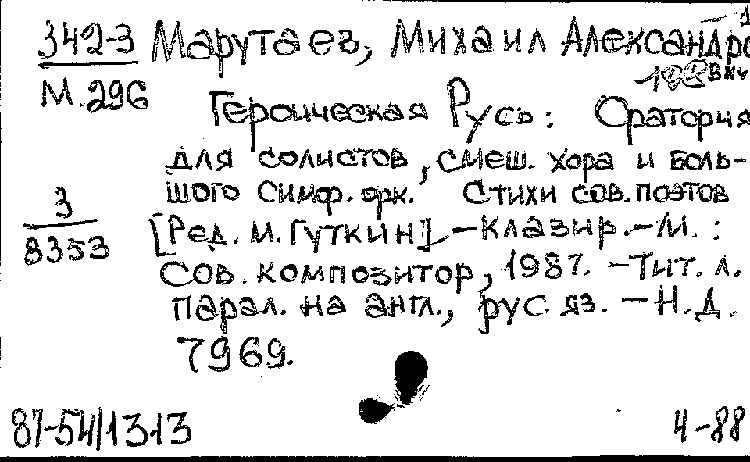 342-3 Марутаев, Михаил Александро
вич
М.296
Героическая Русь: Оратория
для солистов, смеш. хора и боль-
шого симф. орк. Стихи сов. поэтов
3
8353
[Ред. М. Гуткин]. - Клавир. - М. :
Сов. композитор, 1987. - Тит. л.
парал. на англ., рус. яз. - Н. Д.
7969.
87-54/1313 4-88